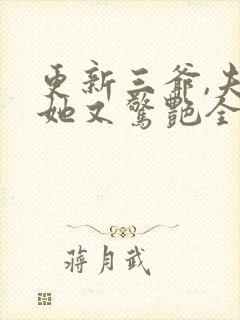 更新三爷,夫
她又惊艳全
蒋月武